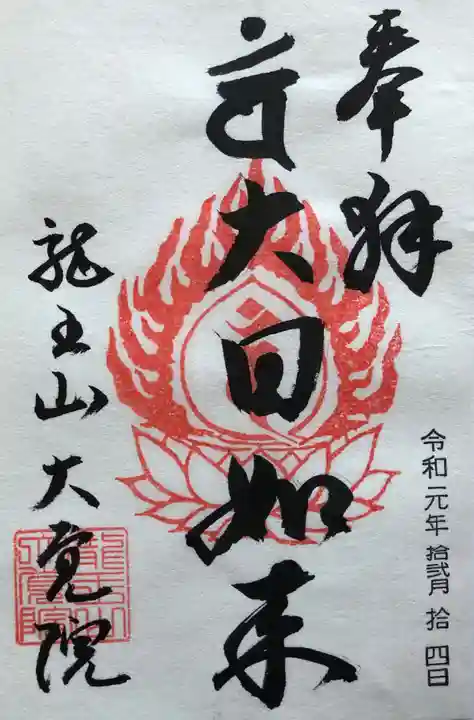 奉拜
大日如来
龍王山大覚院
令和元年 拾弐月 拾四日